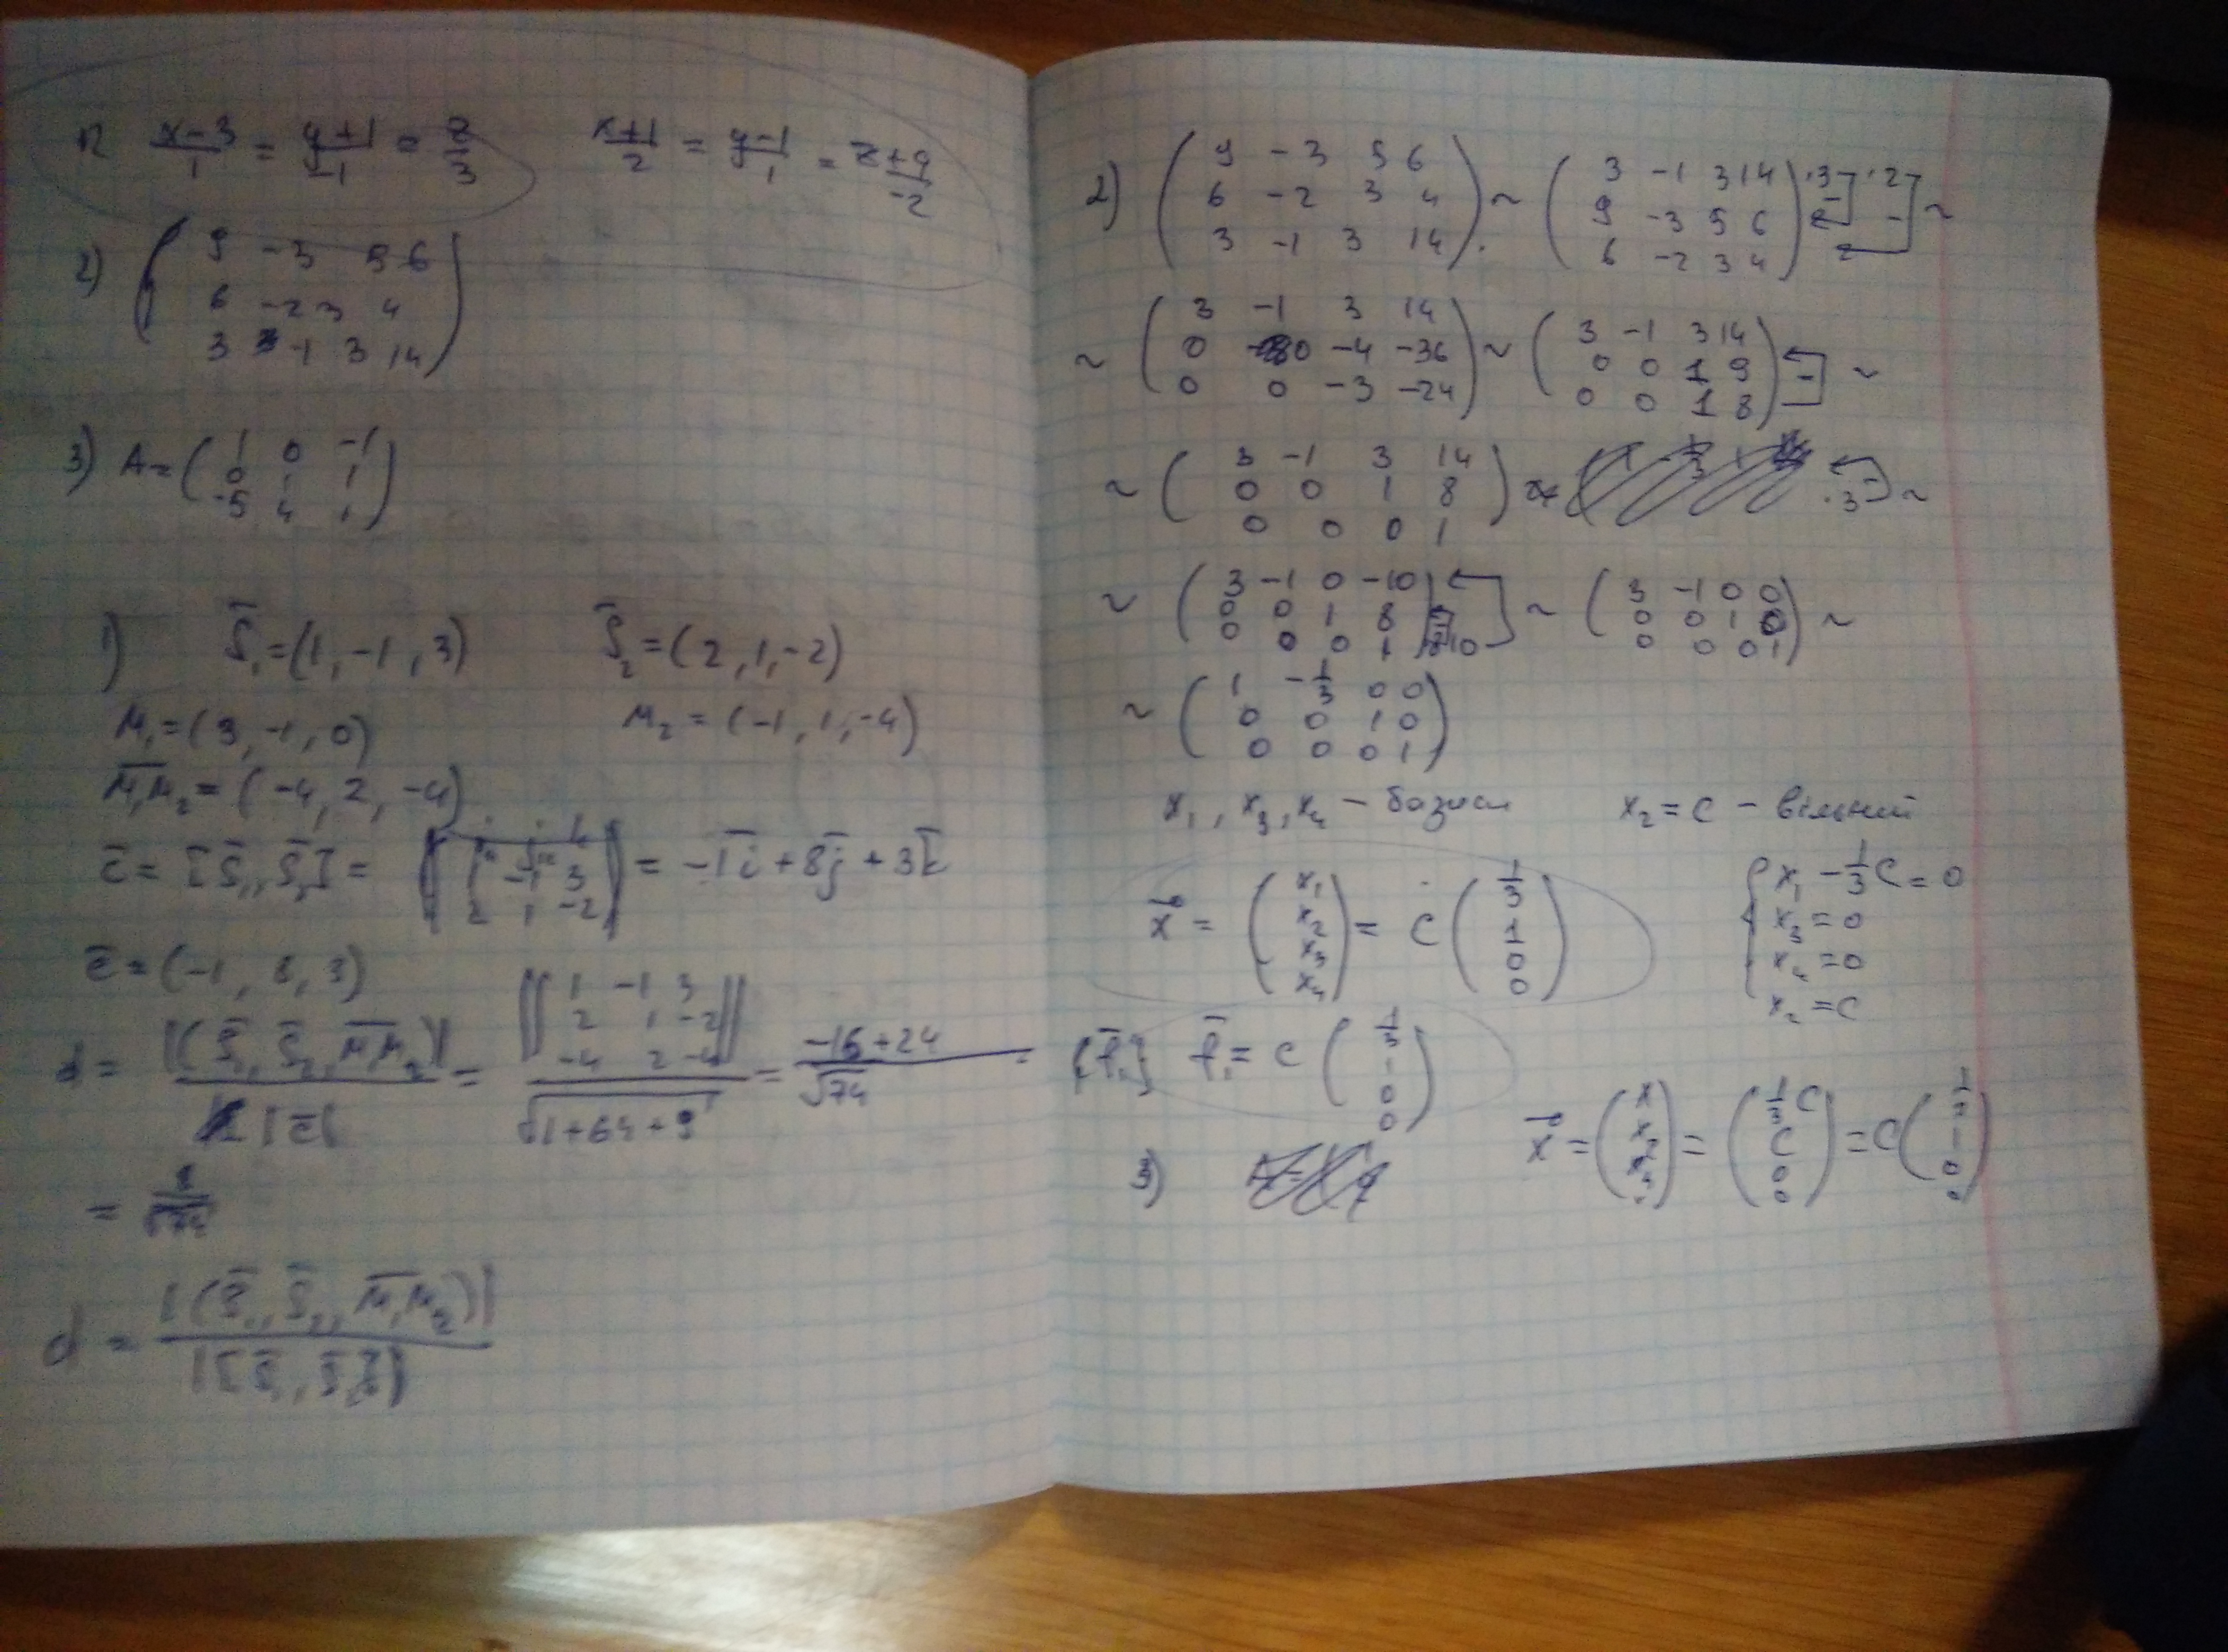 1) x-3/1 = y+1/-1 = z/3   x+1/2 = y-1/1 = z+4/-2
2) ( 9 -3 5 6
6 -2 3 4
3 -1 3 14 )
3) A = ( 1 0 -1
0 1 1
-5 4 1 )
1) S̄₁ = (1, -1, 3)   S̄₂ = (2, 1, -2)
M₁ = (3, -1, 0)   M₂ = (-1, 1, -4)
M₁M₂ = (-4, 2, -4)
c̄ = [S̄₁, S̄₂] = | i j k
1 -1 3
2 1 -2 | = -1ī + 8j̄ + 3k̄
c̄ = (-1, 8, 3)
d = |(S̄₁, S̄₂, M̄M̄₂)| / |c̄| = || 1 -1 3
2 1 -2
-4 2 -4 || / √1+64+9 = -16+24 / √74 =
= 8/√74
d = |(S̄₁, S̄₂, M₁M₂)| / |[S̄₁, S̄₂]|
2) ( 9 -3 5 6
6 -2 3 4
3 -1 3 14 ) ~ ( 3 -1 3 14
9 -3 5 6
6 -2 3 4 ) ·3 - ·2 - ~
~ ( 3 -1 3 14
0 0 -4 -36
0 0 -3 -24 ) ~ ( 3 -1 3 14
0 0 1 9
0 0 1 8 ) - ~
~ ( 3 -1 3 14
0 0 1 8
0 0 0 1 ) ~ - ·3 ~
~ ( 3 -1 0 -10
0 0 1 8
0 0 0 1 ) ·10 ~ ( 3 -1 0 0
0 0 1 0
0 0 0 1 ) ~
~ ( 1 -1/3 0 0
0 0 1 0
0 0 0 1 )
x₁, x₃, x₄ – базисн   x₂ = c – вільний
x⃗ = ( x₁
x₂
x₃
x₄ ) = c ( 1/3
1
0
0 )
{ x₁ - 1/3 c = 0
x₃ = 0
x₄ = 0
x₂ = c
{f̄₁} f̄₁ = c ( 1/3
1
0
0 )
x⃗ = ( x
x₂
x₃
. ) = ( 1/3 c
c
0
0 ) = c ( 1/3
1
0
0 )
3)